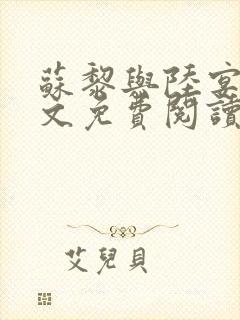 蘇黎與陸宴
文免費閱讀
艾兒貝